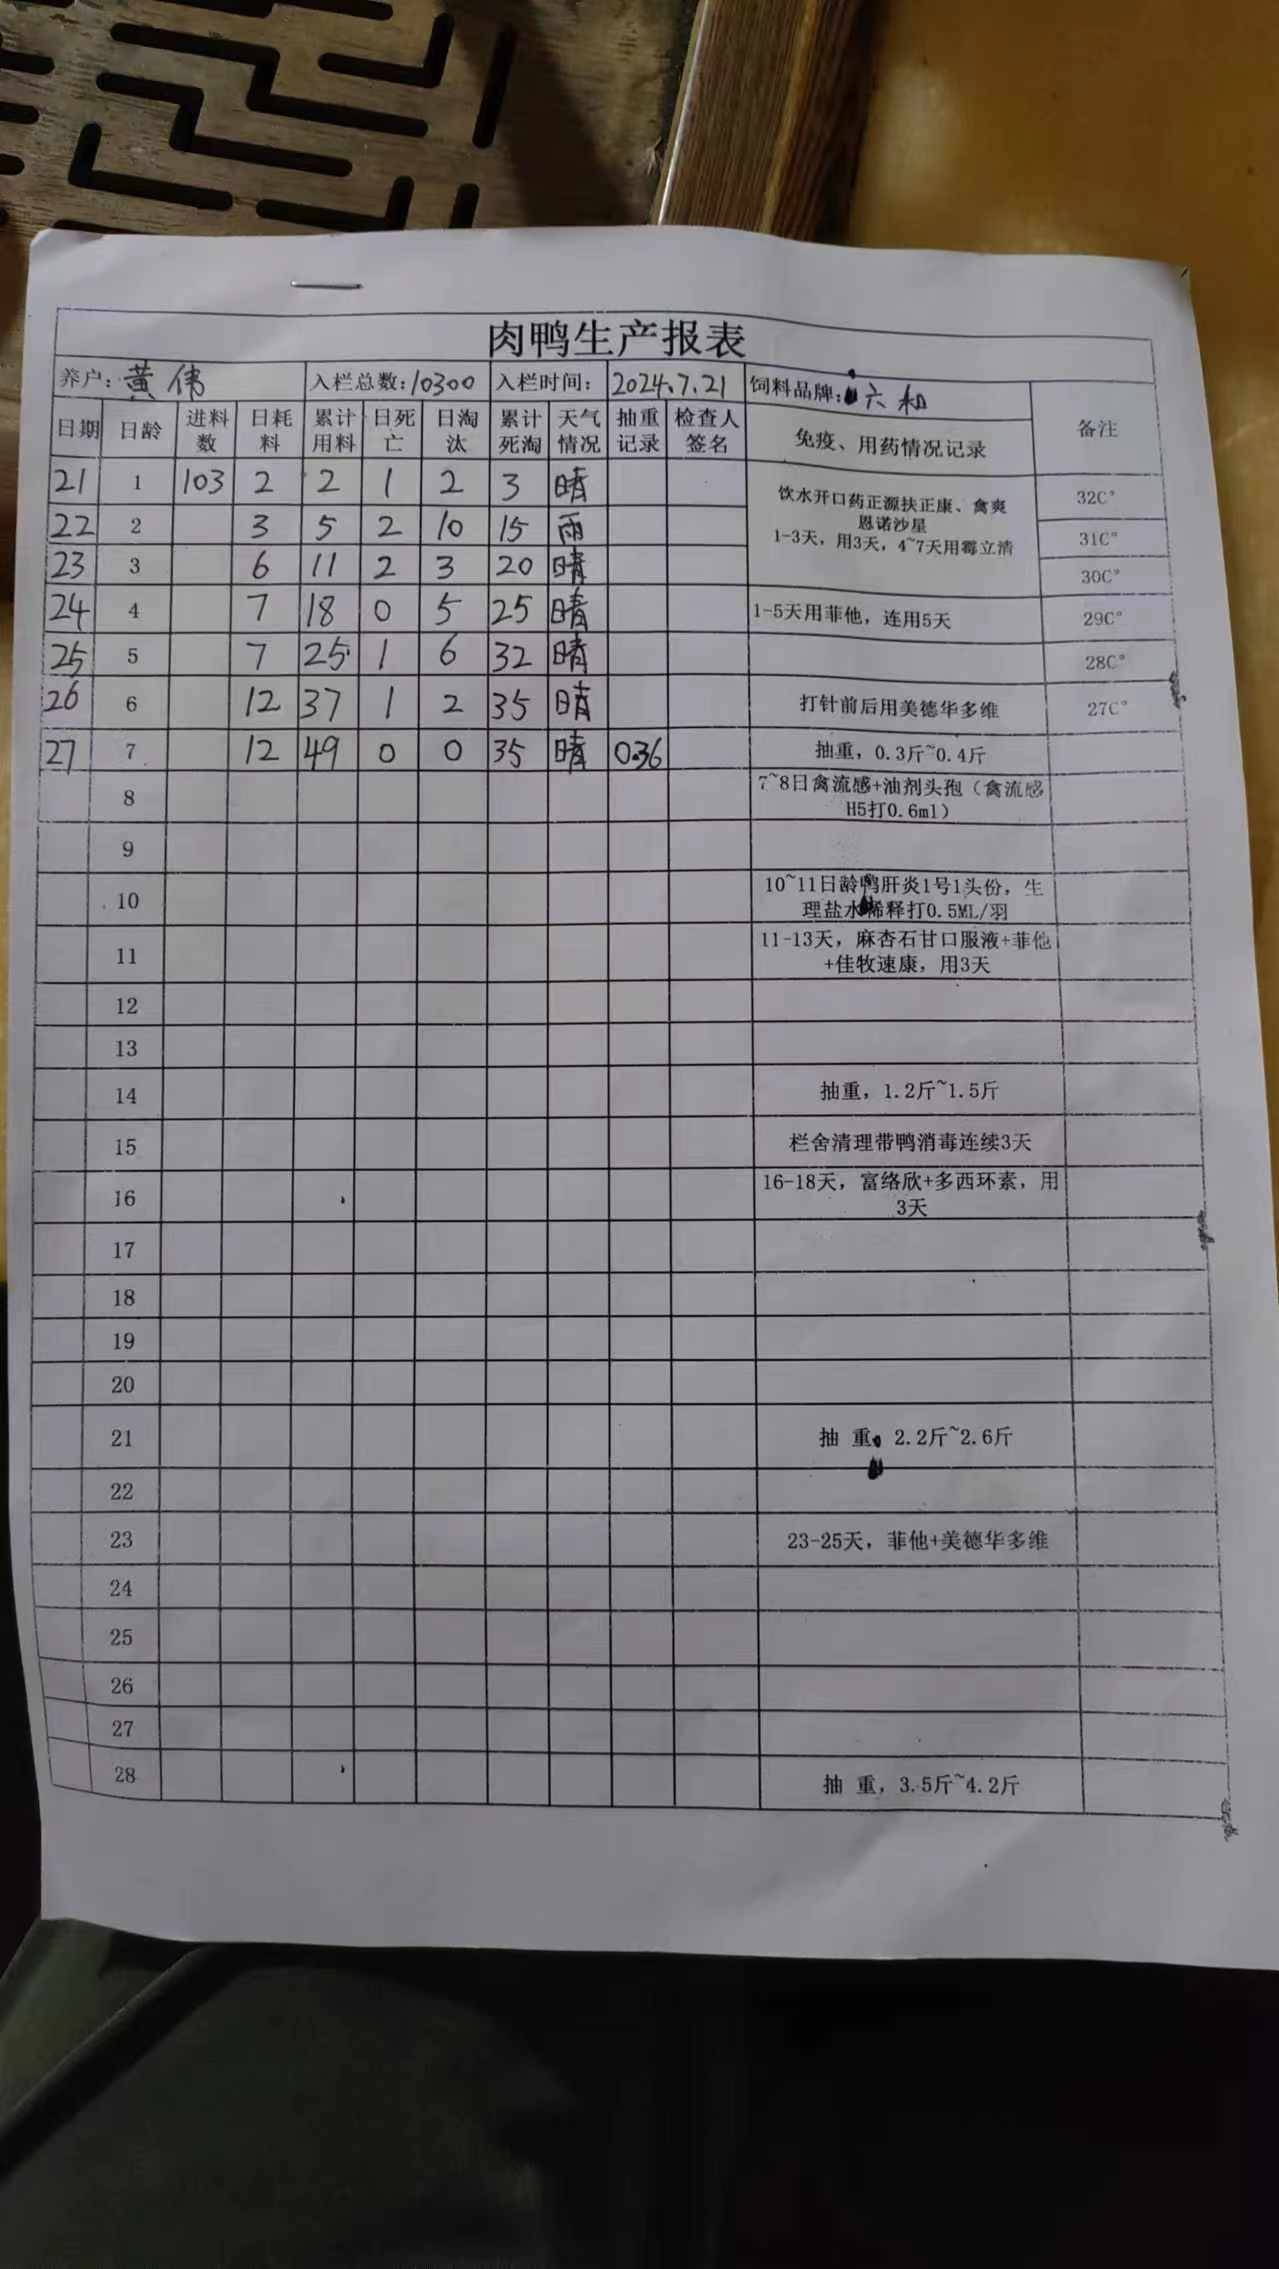 肉鸭生产报表
养户: 黄伟 入栏总数: 10300 入栏时间: 2024.7.21 饲料品牌: 六和 备注
日期 日龄 进料数 日耗料 累计用料 日死亡 日淘汰 累计死淘 天气情况 抽重记录 检查人签名 免疫、用药情况记录
21 1 103 2 2 1 2 3 晴 饮水开口药正源扶正康、禽爽 32C°
恩诺沙星
22 2 3 5 2 10 15 雨 1-3天，用3天，4~7天用霉立清 31C°
23 3 6 11 2 3 20 晴 30C°
24 4 7 18 0 5 25 晴 1-5天用菲他，连用5天 29C°
25 5 7 25 1 6 32 晴 28C°
26 6 12 37 1 2 35 晴 打针前后用美德华多维 27C°
27 7 12 49 0 0 35 晴 0.36 抽重，0.3斤~0.4斤
8 7~8日禽流感+油剂头孢（禽流感
H5打0.6ml）
9
10 10~11日龄鸭肝炎1号1头份，生
理盐水稀释打0.5ML/羽
11 11-13天，麻杏石甘口服液+菲他
+佳牧速康，用3天
12
13
14 抽重，1.2斤~1.5斤
15 栏舍清理带鸭消毒连续3天
16 16-18天，富络欣+多西环素，用
3天
17
18
19
20
21 抽 重，2.2斤~2.6斤
22
23 23-25天，菲他+美德华多维
24
25
26
27
28 抽 重，3.5斤~4.2斤